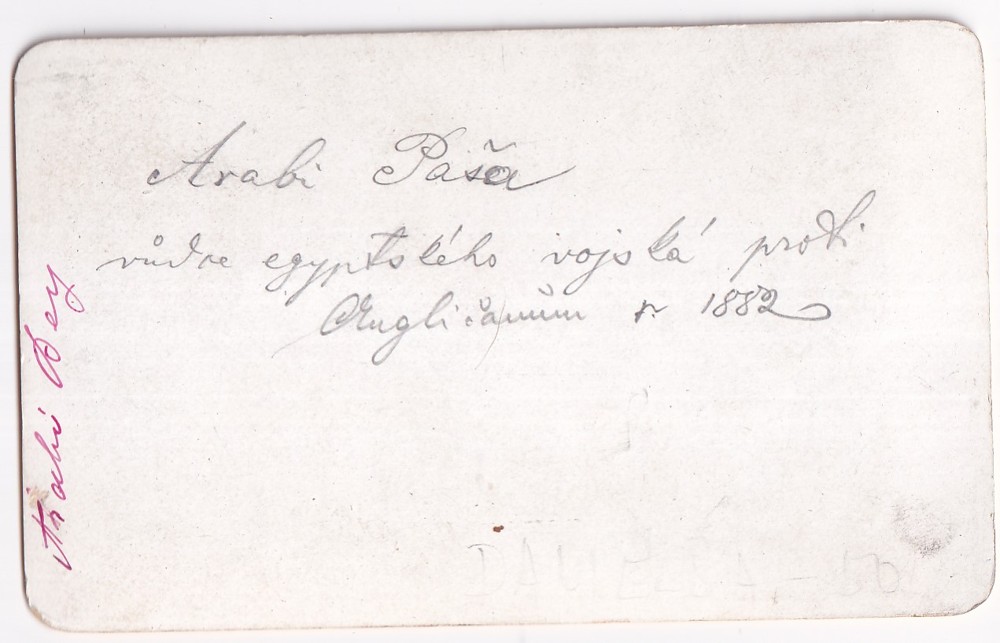 Arabi Paša
vůdce egyptského vojská proti
Angličanům r. 1882
Arabi Bey